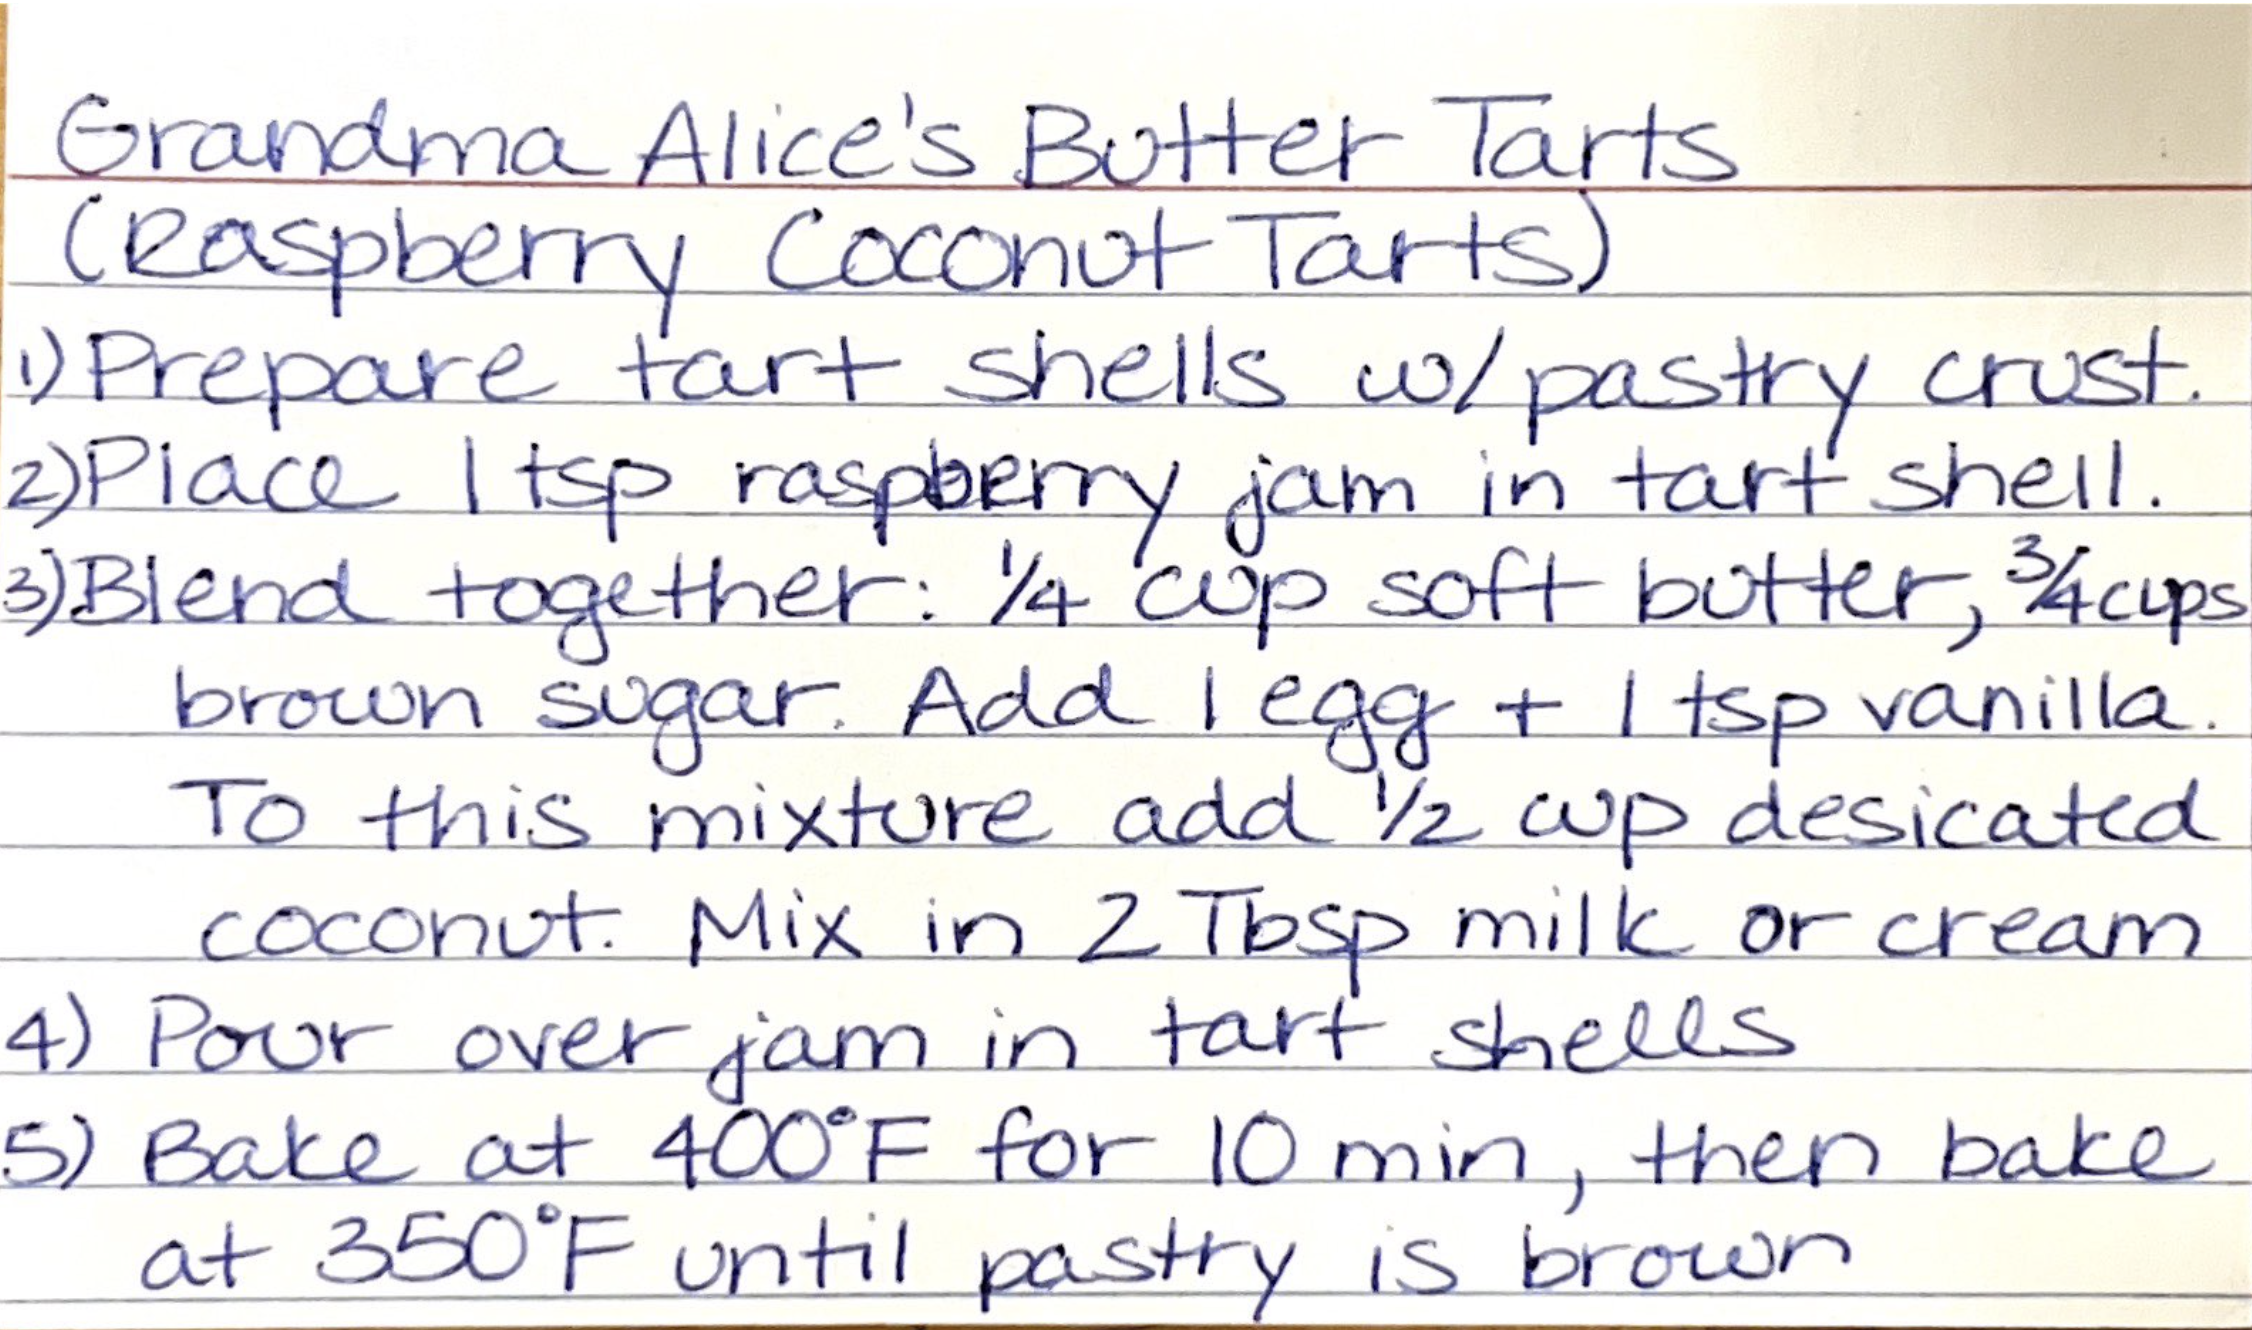 Grandma Alice's Butter Tarts
(Raspberry Coconut Tarts)
1) Prepare tart shells w/ pastry crust.
2) Place 1 tsp raspberry jam in tart shell.
3) Blend together: 1/4 cup soft butter, 3/4 cups
brown sugar. Add 1 egg + 1 tsp vanilla.
To this mixture add 1/2 cup desicated
coconut. Mix in 2 Tbsp milk or cream
4) Pour over jam in tart shells
5) Bake at 400°F for 10 min, then bake
at 350°F until pastry is brown